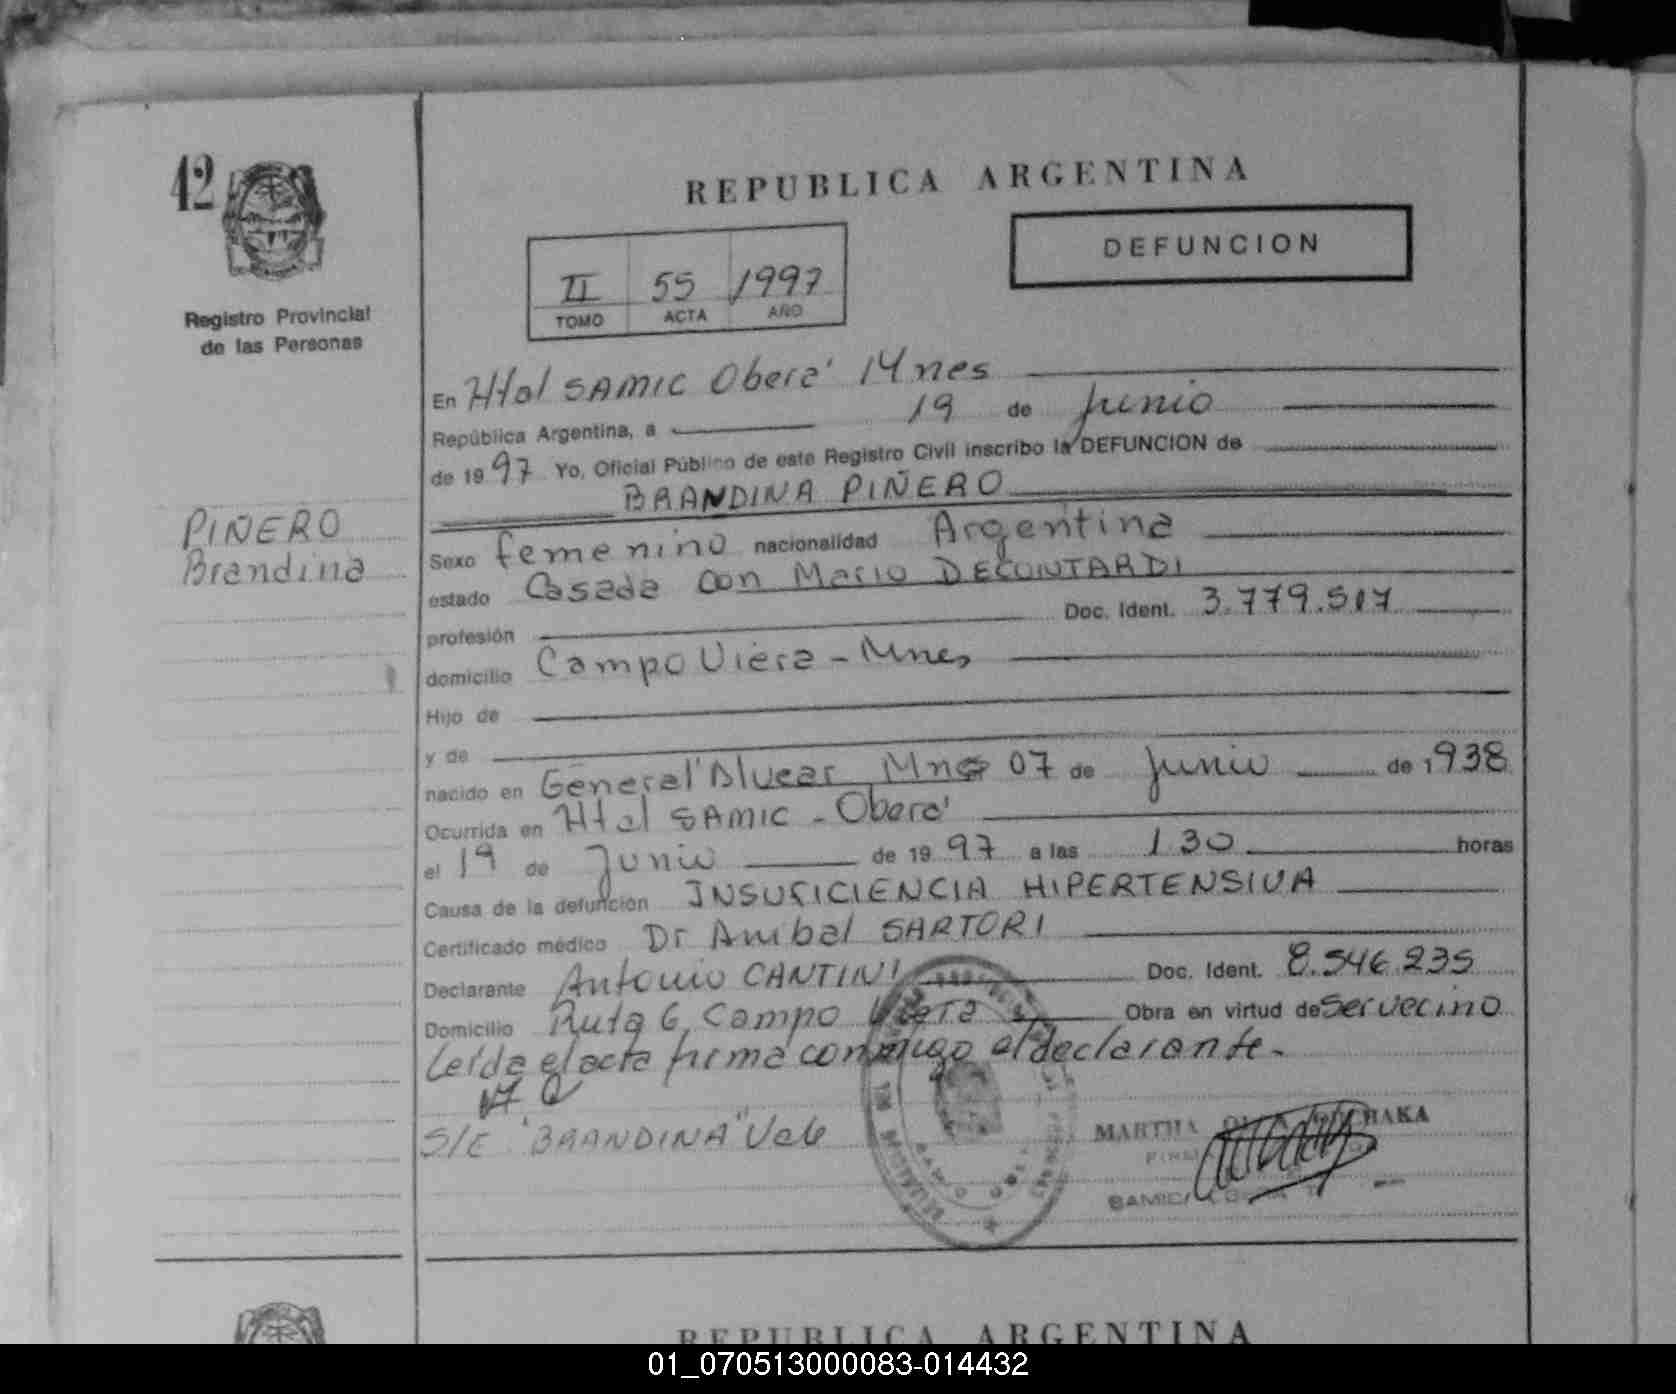 42
REPUBLICA ARGENTINA
DEFUNCION
II 55 1997
TOMO ACTA AÑO
Registro Provincial
de las Personas
En Htal SAMIC Obera' Mnes
República Argentina, a 19 de Junio
de 1997 Yo, Oficial Público de este Registro Civil inscribo la DEFUNCION de
BRANDINA PIÑERO
PIÑERO
Brandina
Sexo femenino nacionalidad Argentina
estado Casada con Mario DECUNTARDI
profesión Doc. Ident. 3.779.517
domicilio Campo Viera - Mnes
Hijo de
y de
nacido en General Alvear Mnes 07 de Junio de 1938
Ocurrida en Htal SAMIC - Obera'
el 19 de Junio de 1997 a las 1 30 horas
Causa de la defunción INSUFICIENCIA HIPERTENSIVA
Certificado médico Dr Anibal SARTORI
Declarante Antonio CANTINI Doc. Ident. 8.546.235
Domicilio Ruta 6, Campo Viera Obra en virtud de Ser vecino
Leida el acta firma conmigo el declarante.
S/E "BRANDINA" Vale
MARTHA
SAMIC
REPUBLICA ARGENTINA
01_070513000083-014432